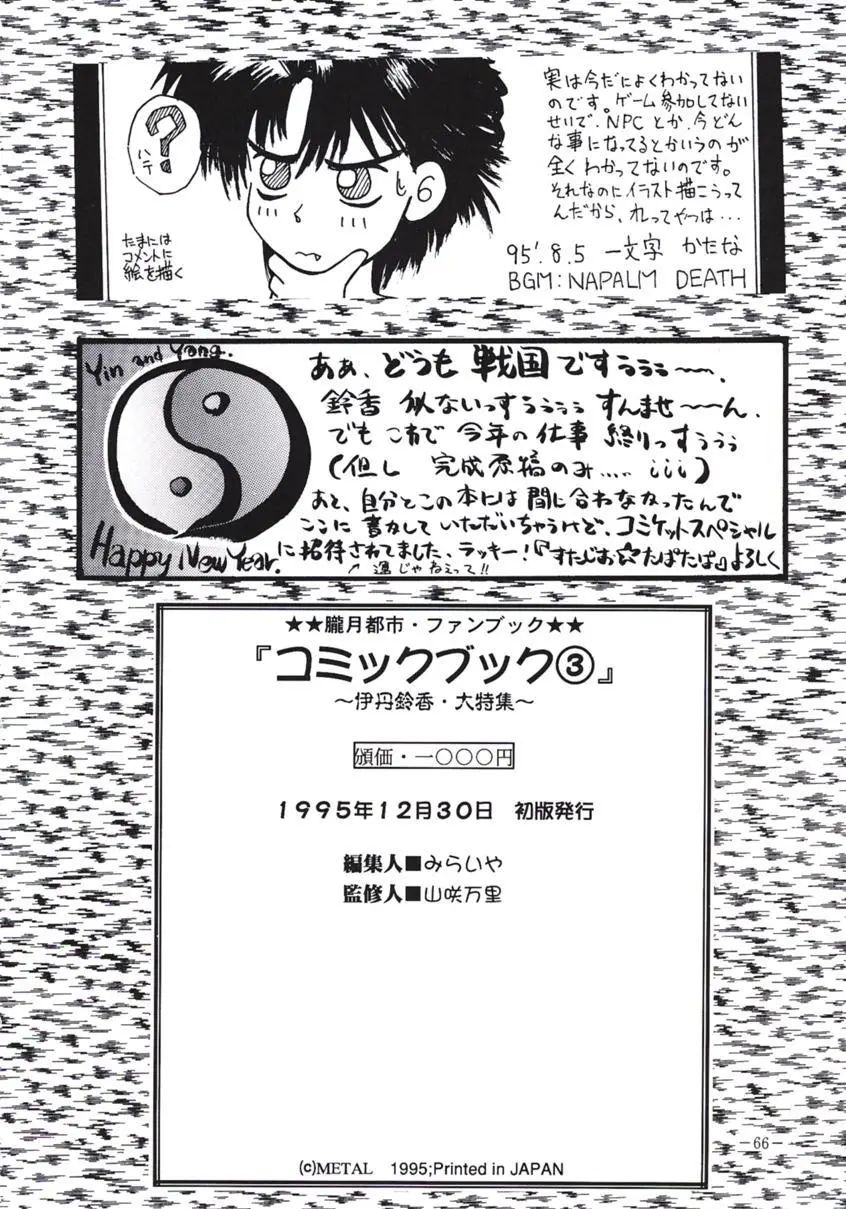 ?
ハテ
たまには
コメントに
絵を描く
実は今だによくわかってない
のです。ゲーム参加してない
せいで、NPCとか、今どん
な事になってるとかいうのが
全くわかってないのです。
それなのにイラスト描こうって
んだから、れってやつは…
95'.8.5 一文字 かたな
BGM:NAPALM DEATH
Yin and Yang.
Happy New Year.
ああ、どうも 戦国ですぅぅぅ〜〜、
鈴香 似ないっすぅぅぅぅ すんませ〜〜ん、
でも これで 今年の仕事 終りっすぅぅぅ
(但し 完成原稿のみ…‥ ¡¡¡)
あと、自分とこの本には間に合わなかったんで
ここに書かして いただいちゃうけど、コミケットスペシャル
に招待されてました、ラッキー!『すたじお☆たぱたぱ』よろしく
↑運じゃねえって!!
★★朧月都市・ファンブック★★
『コミックブック③』
～伊丹鈴香・大特集～
頒価・一〇〇〇円
1995年12月30日 初版発行
編集人■みらいや
監修人■山咲万里
(c)METAL 1995;Printed in JAPAN
-66-